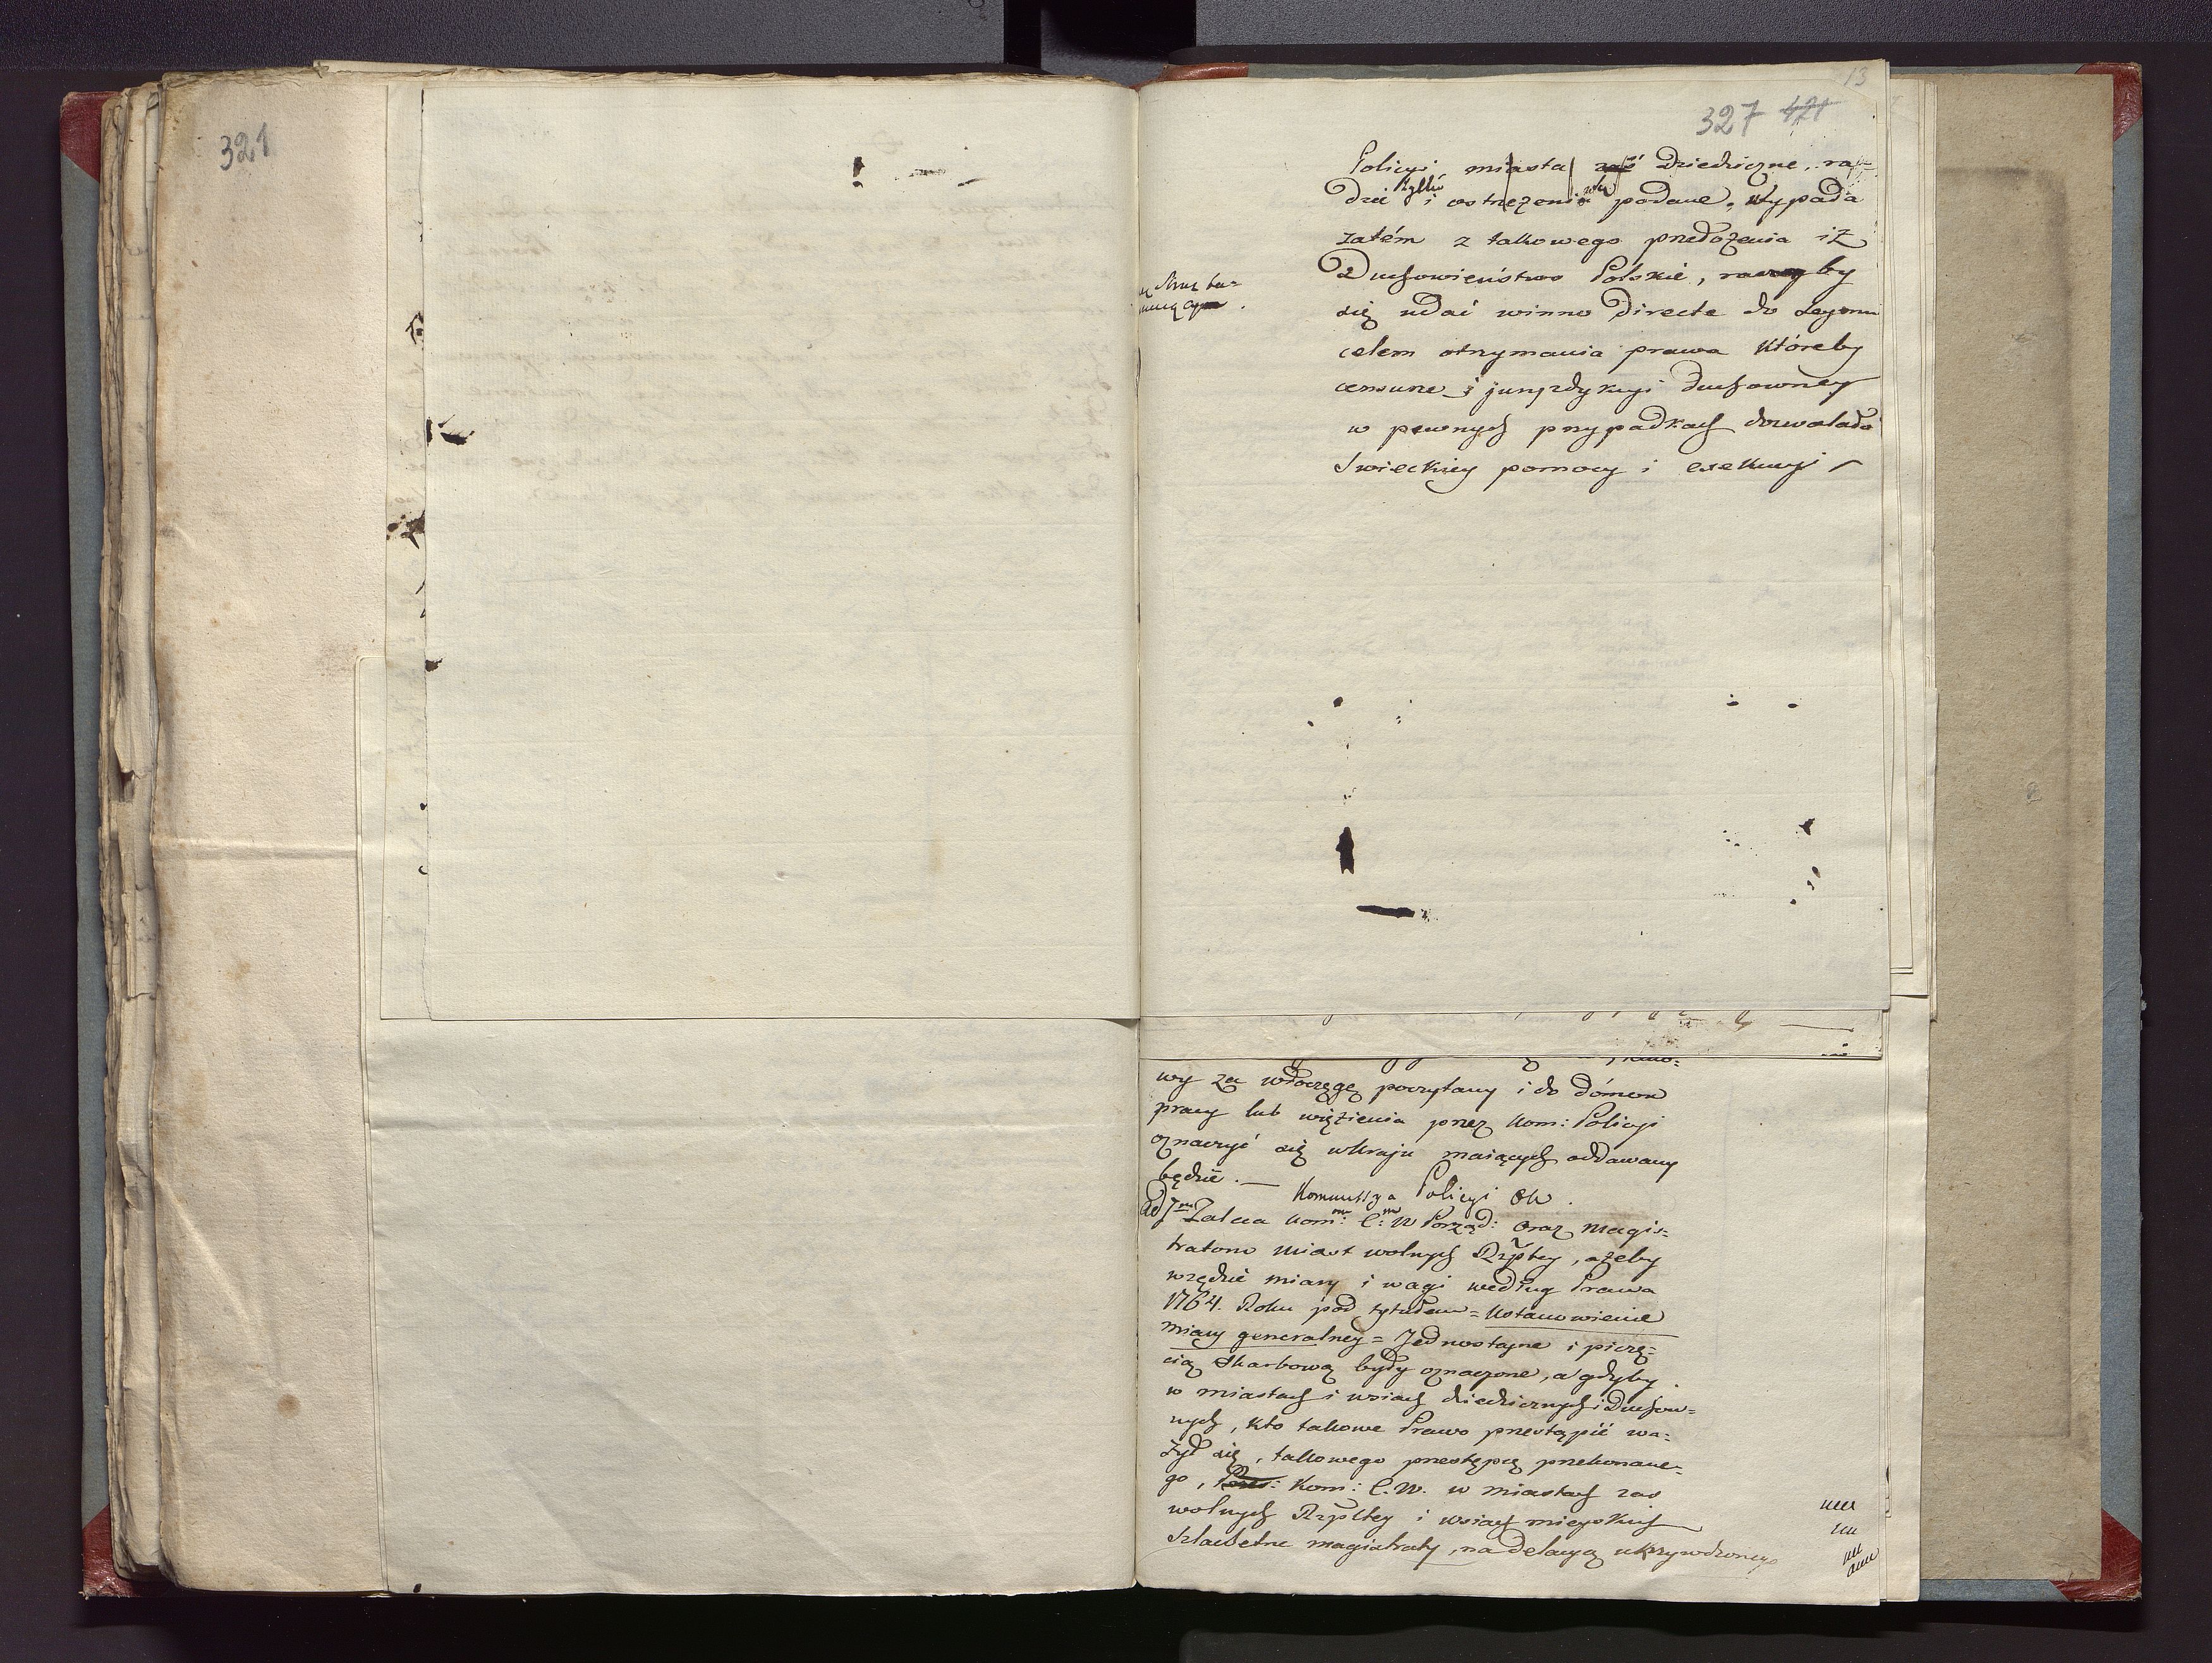 321
13
327 421
Policyi miasta zaś dziedziczne, rap-
dzie tylko i ostrzeżenia podane, wypada
zatém z takowego przedłożenia iż
Duchowieństwo Polskie, raczey by
się udać winno directe do Seymu
celem otrzymania prawa któreby
censurze i juryzdykcyi duchowney
w pewnych przypadkach dozwalało
Swieckiey pomocy i exekucyi
wy za włóczęgę poczytany i do dómow
pracy lub więzienia przez Kom: Policyi
oznaczyć się wkraju maiących oddawany
będzie. — Kommissya Policyi ON.
Ad 7mm Zaleca Kom: C: W Porząd: oraz Magis=
tratom Miast wolnych Rzpltey, ażeby
wszędzie miary i wagi według Prawa
1764. Roku pod tytułem = Ustanowienie
miary generalney = Jednostayne i pieczę=
cią Skarbową były oznaczone, a gdyby
w miastach i wsiach dziedzicznych i Duchow=
nych, kto takowe Prawo przestąpić wa=
żył się, takowego przestępcę przekonane=
go, Kom: C. W. w miastach zaś
wolnych Rzpltey i wsiach mieyskich
Szlachetne magistraty, na delacyą ukrzywdzonego